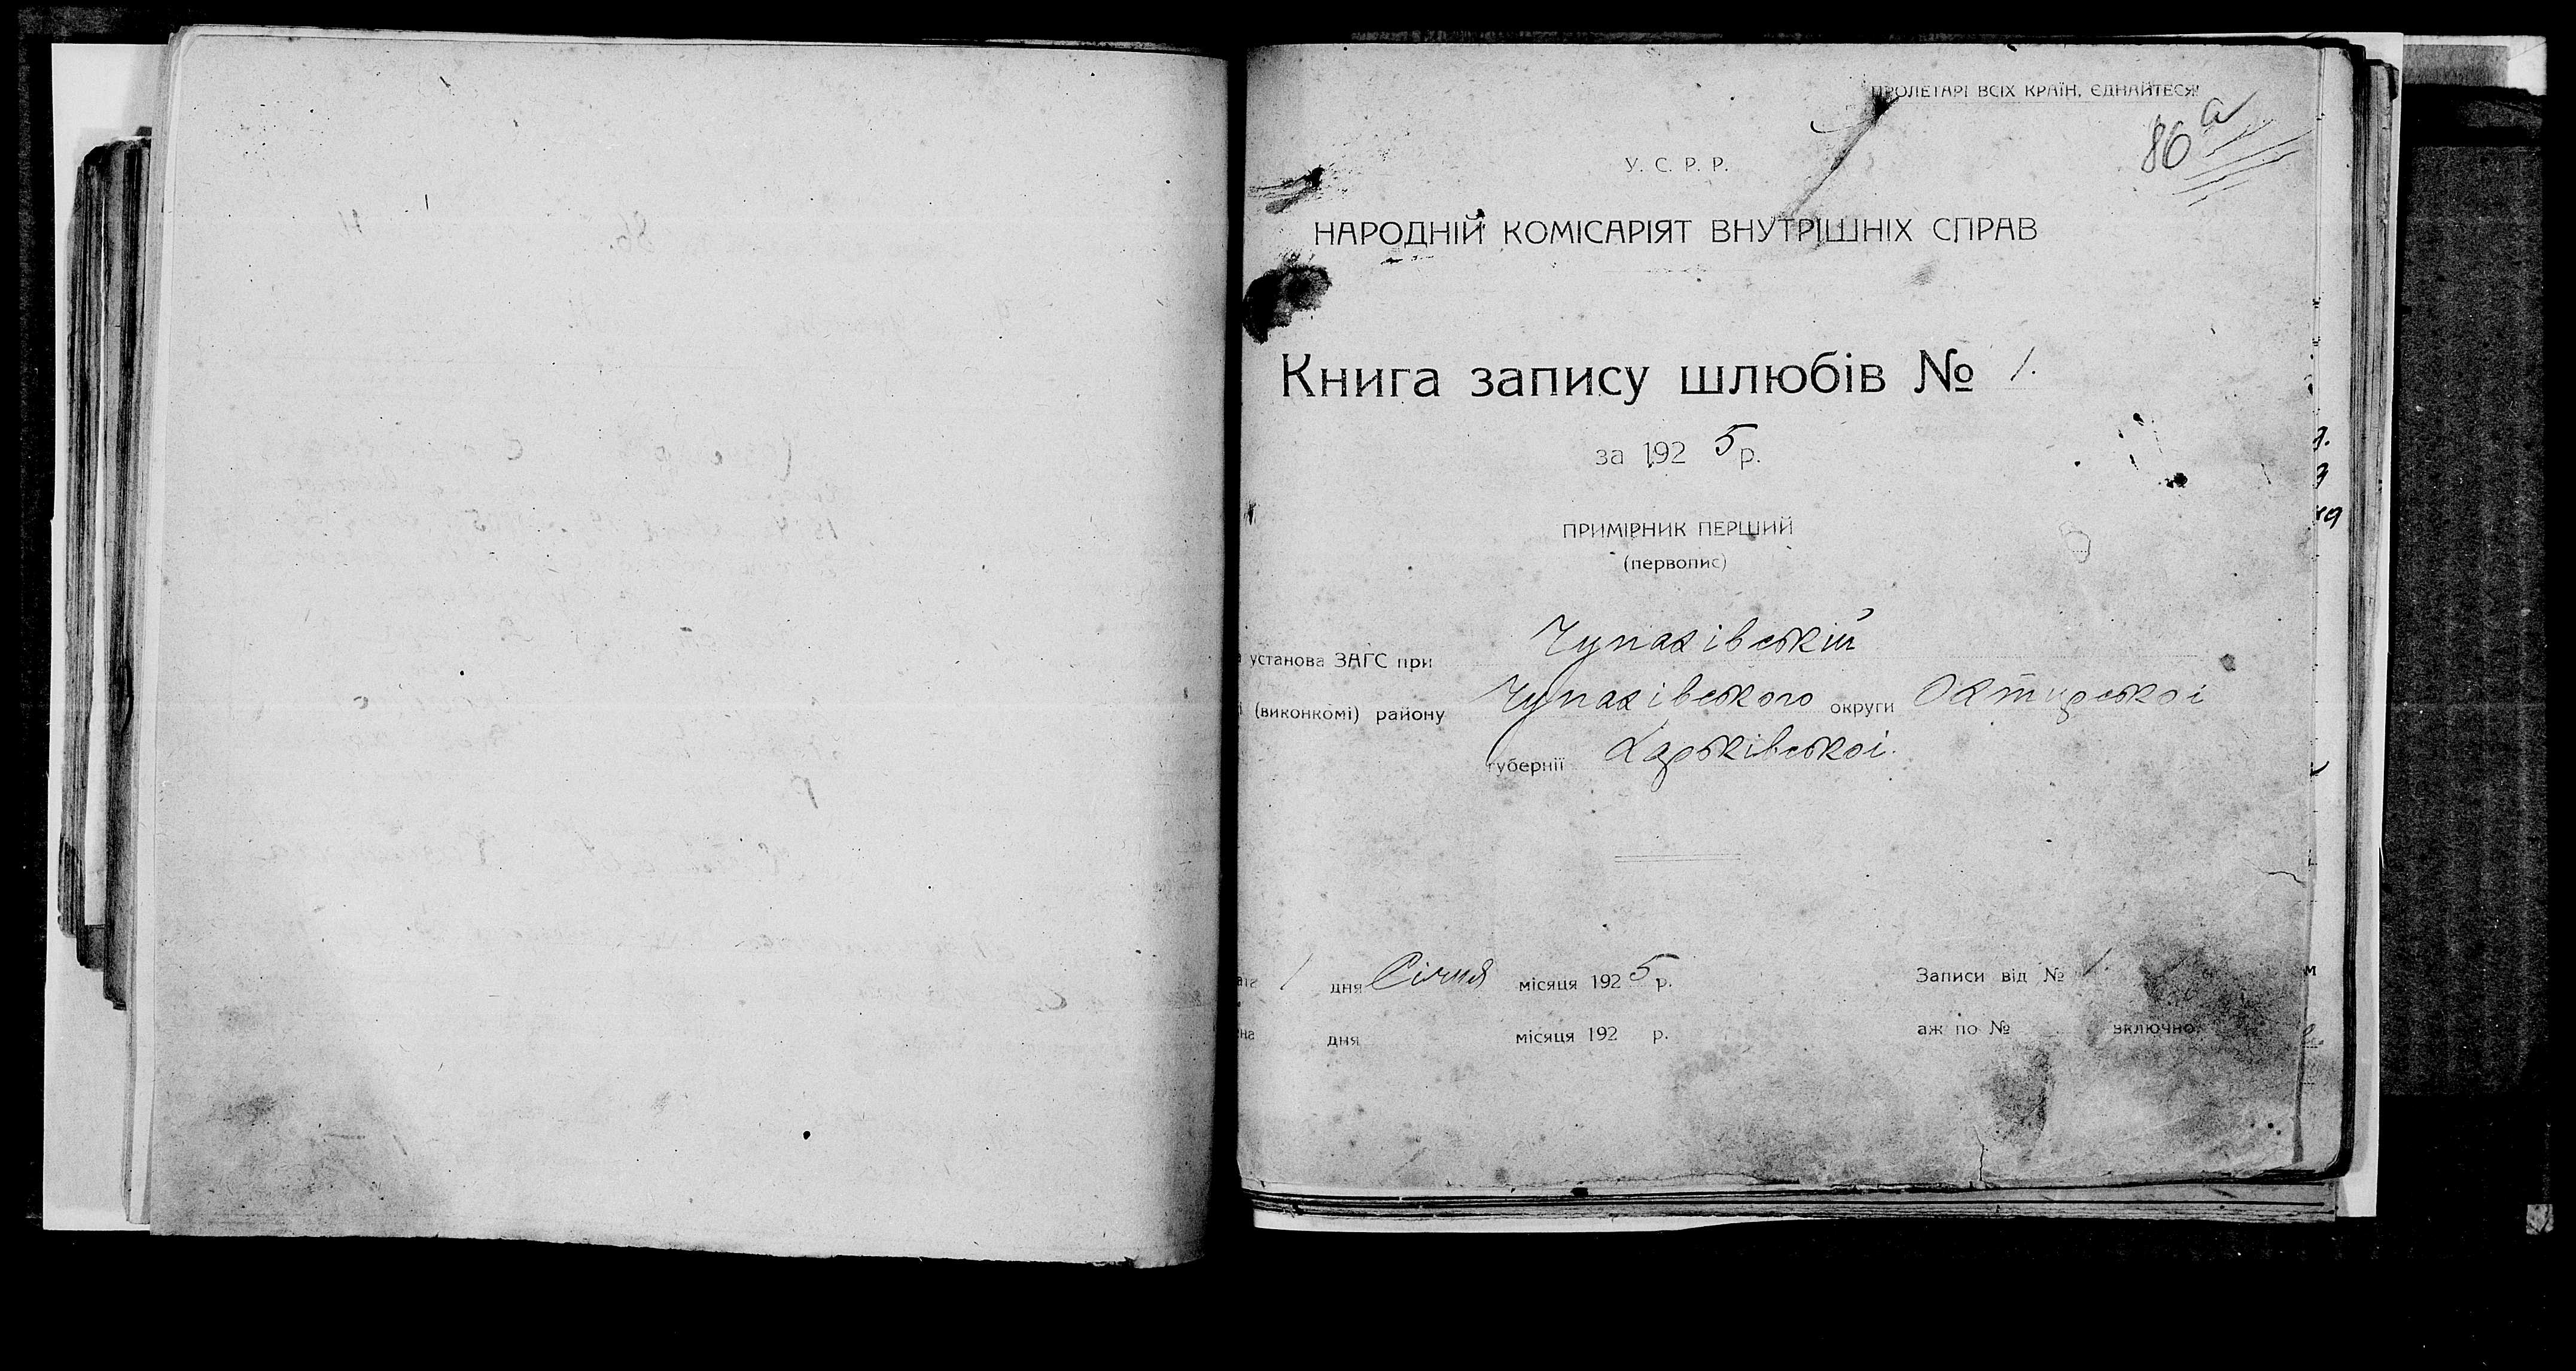 ПРОЛЕТАРІ ВСІХ КРАЇН, ЄДНАЙТЕСЯ!
86 а
У. С. Р. Р.
НАРОДНІЙ КОМІСАРІЯТ ВНУТРІШНІХ СПРАВ
Книга запису шлюбів № 1.
за 1925 р.
ПРИМІРНИК ПЕРШИЙ
(первопис)
установа ЗАГС при Чупахівській
(виконкомі) району Чупахівского округи Охтирскоі
губернії Харьківськоі.
1 дня Січня місяця 1925 р. Записи від № 1.
дня місяця 192 р. аж по № включно.